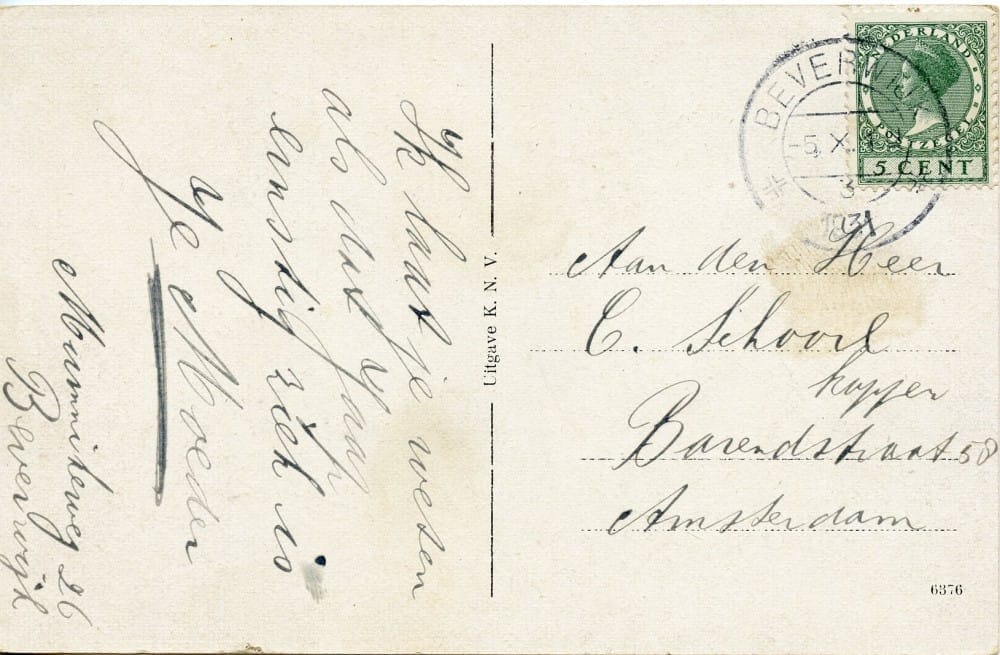 Ik laat je weten
als dat Jaap
ernstig ziek is
Je Moeder
Beverwijk
Uitgave K. N. V.
BEVERWIJK
-5. X. 3
1931
NEDERLAND
POSTZEGEL
5 CENT
Aan den Heer
C. Schoorl
kapper
Barendstraat 58
Amsterdam
6376